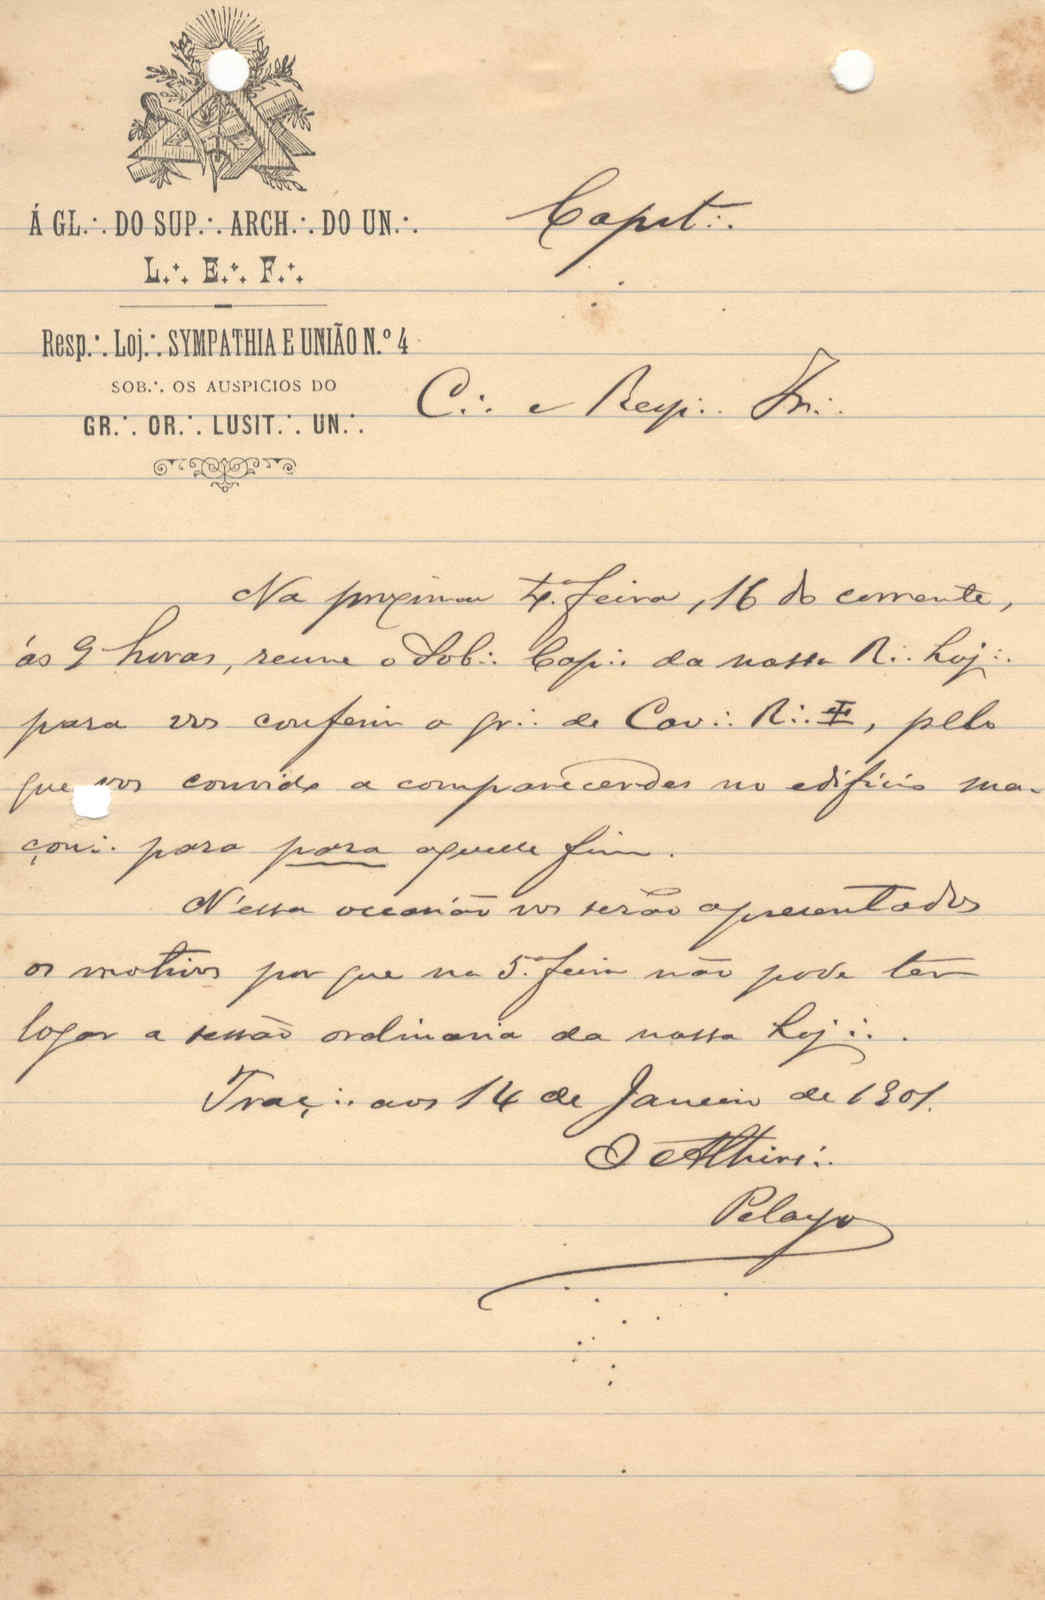 Á GL.·. DO SUP.·. ARCH.·. DO UN.·.
L.·. E.·. F.·.
Resp.·. Loj.·. SYMPATHIA E UNIÃO N.º 4
SOB.·. OS AUSPICIOS DO
GR.·. OR.·. LUSIT.·. UN.·.
Capit.·.
C.·. e Resp.·. Ir.·.
Na proxima 4.ª feira, 16 do corrente,
ás 9 horas, reune o Sob.·. Cap.·. da nossa R.·. Loj.·.
para vos conferir o gr.·. de Cav.·. R.·. ✠, pelo
que vos convido a comparecerdes no edificio ma-
çon.·. para para aquelle fim.
N'essa occasião vos serão apresentados
os motivos por que na 5.ª feira não pode ter
logar a sessão ordinaria da nossa Loj.·.
Traç.·. aos 14 de Janeiro de 1901.
O Athirs.·.
Pelayo